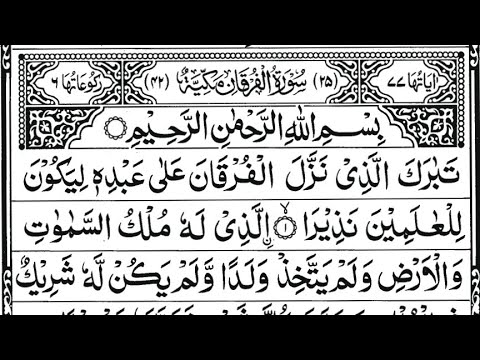 اٰيَاتُهَا ٧٧ (٢٥) سُوْرَةُ الْفُرْقَانِ مَكِّيَّةٌ (٤٢) رُكُوْعَاتُهَا ٦
بِسْمِ اللّٰهِ الرَّحْمٰنِ الرَّحِيْمِ ۝
تَبٰرَكَ الَّذِيْ نَزَّلَ الْفُرْقَانَ عَلٰى عَبْدِهٖ لِيَكُوْنَ
لِلْعٰلَمِيْنَ نَذِيْرَا ۝١ۙ الَّذِيْ لَهٗ مُلْكُ السَّمٰوٰتِ
وَالْاَرْضِ وَلَمْ يَتَّخِذْ وَلَدًا وَّلَمْ يَكُنْ لَّهٗ شَرِيْكٌ